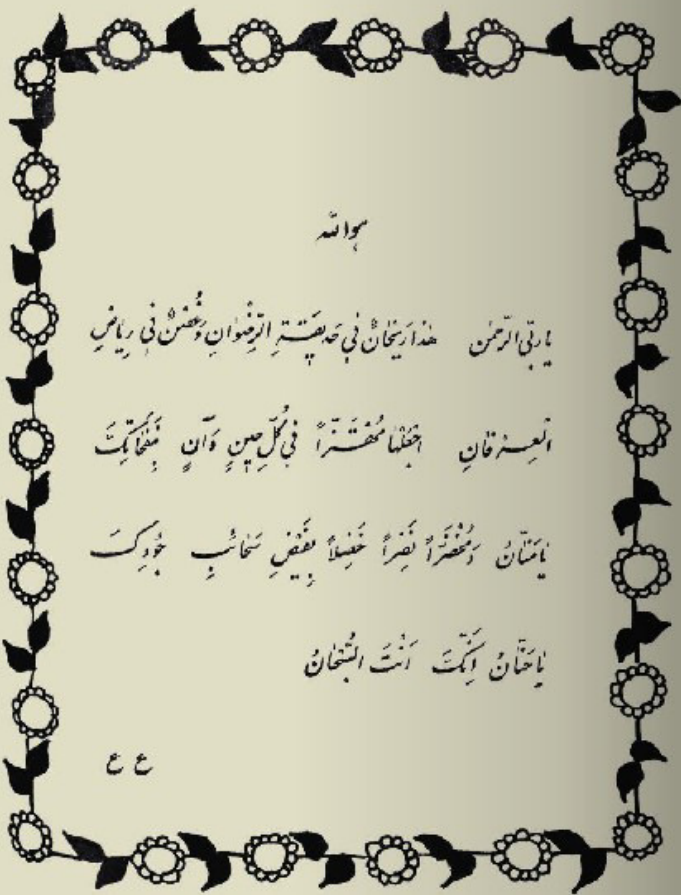 هوالله
یا ربّی الرّحمن هذا ریحانٌ فی حدیقةِ الرّضوانِ و غُصنٌ فی ریاضِ
العِرفانِ اجْعَلْها مُهْتَزّاً فی کُلِّ حینٍ وَ آنٍ بِنَفَحاتِکَ
یا مَنّانُ وَ مُخْضَرّاً نَضِراً خَضِلاً بِفَیْضِ سَحائبِ جُودِکَ
یا حَنّانُ اِنَّکَ اَنْتَ السُّبْحانُ
ع ع